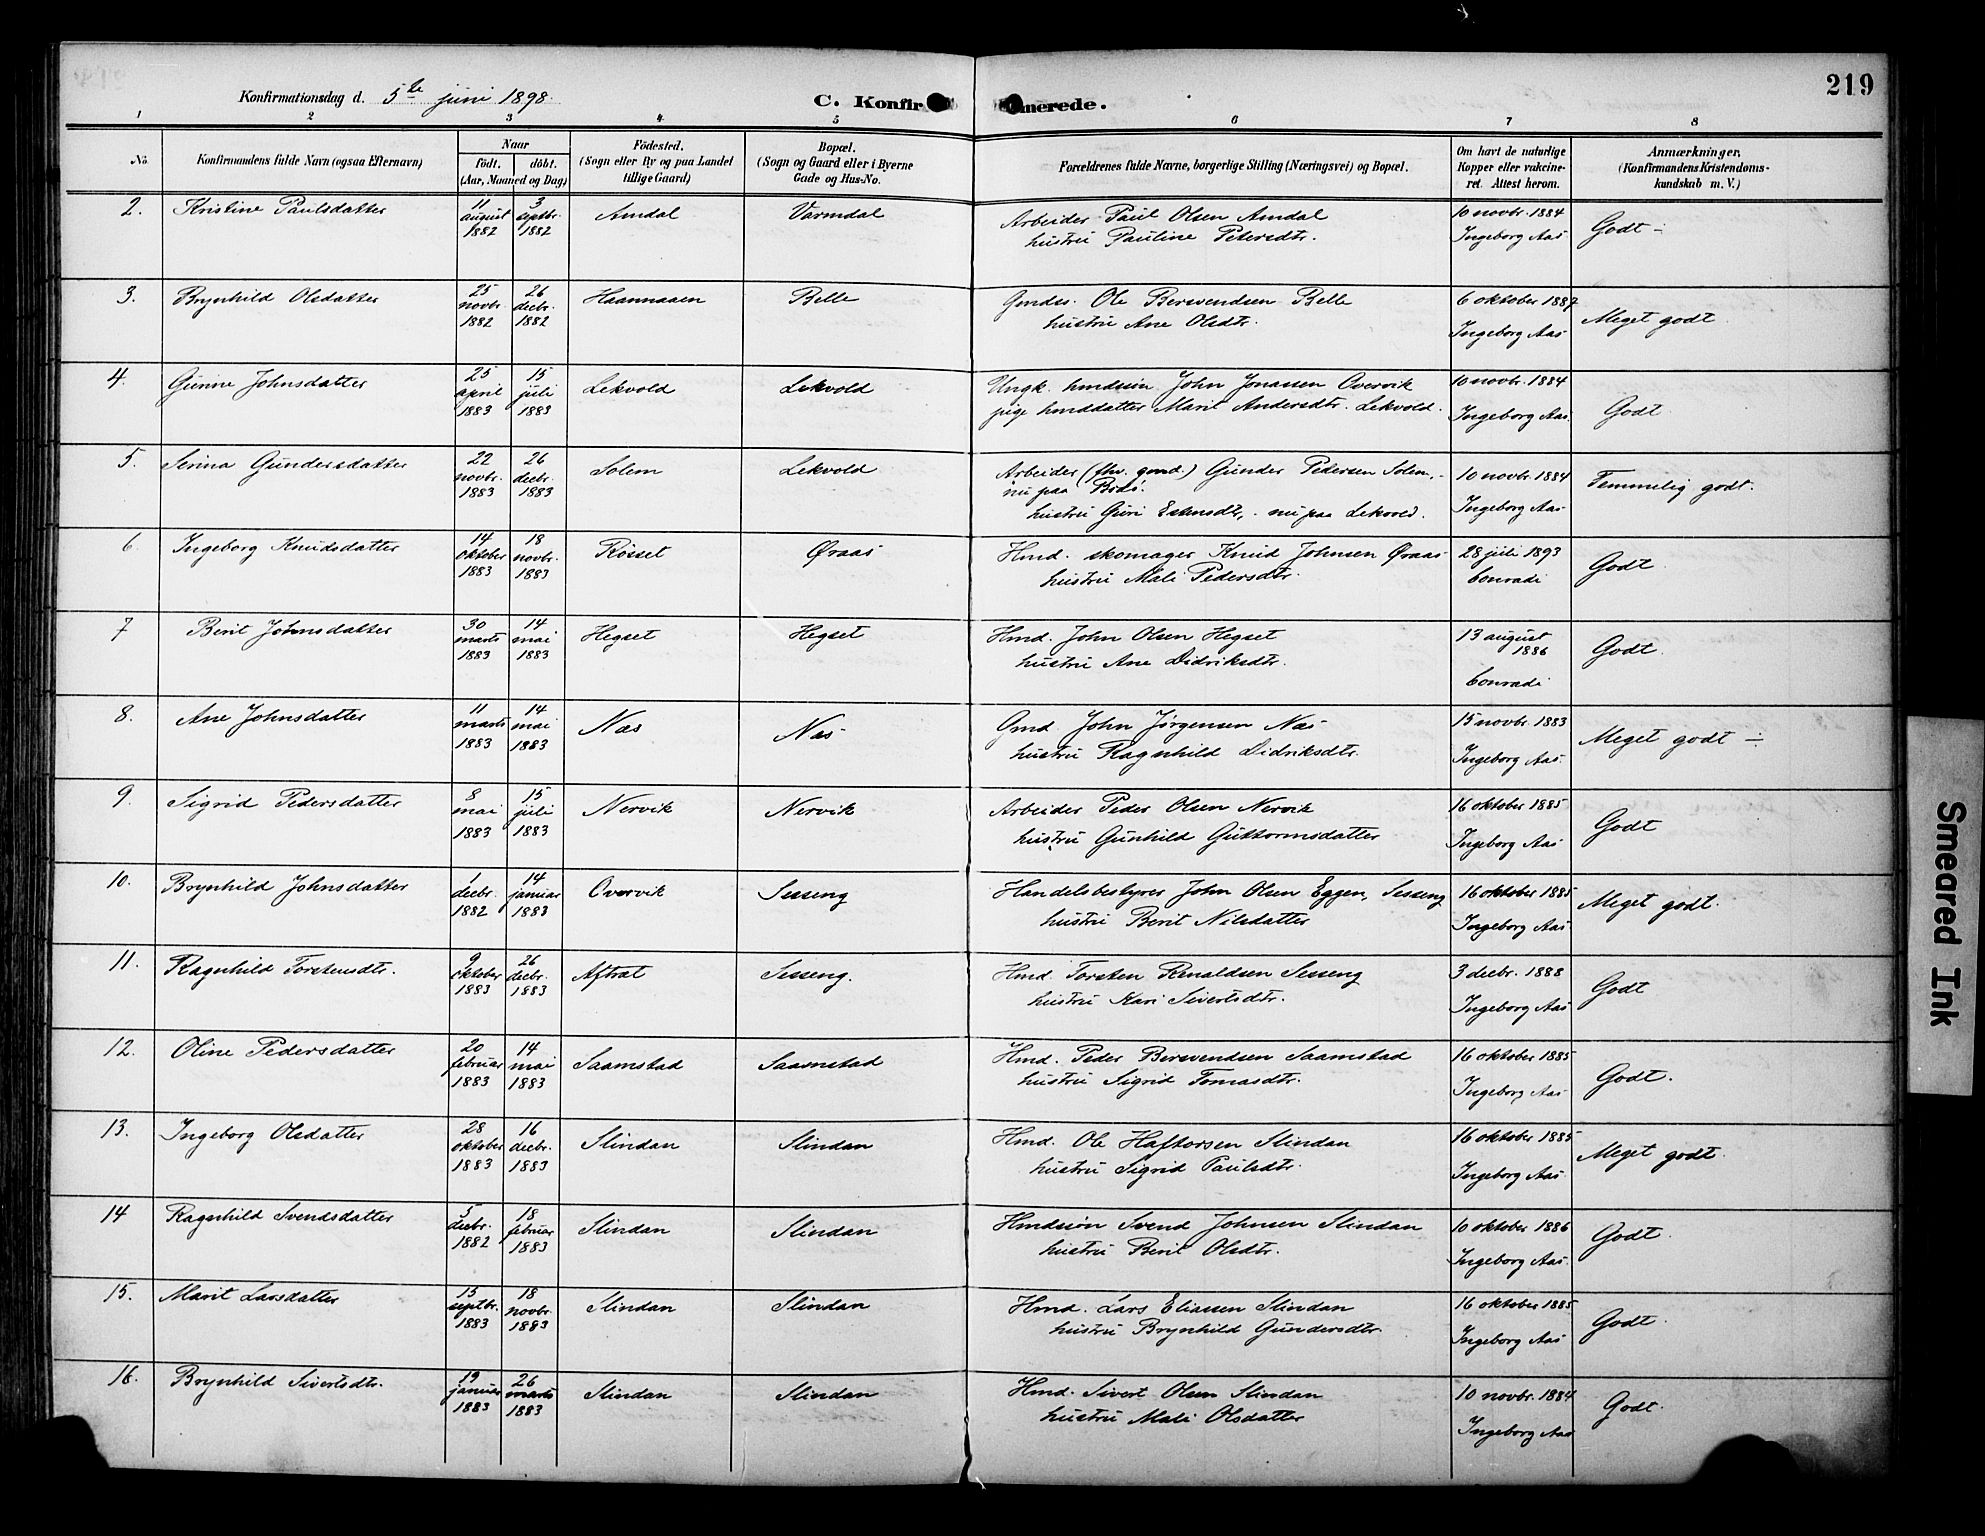 219
Konfirmationsdag d. 5te juni 1898.
C. Konfir merede.
1 2 3 4 5 6 7 8
No. Konfirmandens fulde Navn (ogsaa Efternavn) Naar født. døbt. (Aar, Maaned og Dag) Födested. (Sogn eller By og paa Landet tillige Gaard) Bopæl. (Sogn og Gaard eller i Byerne Gade og Hus-No. Forældrenes fulde Navne, borgerlige Stilling (Næringsvei) og Bopæl. Om havt de naturlige Kopper eller vakcineret. Attest herom. Anmærkninger, (Konfirmandens Kristendomskundskab m. V.)
2. Kristine Paulsdatter 11 august 1882 3 septbr. 1882 Amdal Varmdal Arbeider Paul Olsen Amdal
hustru Pauline Petersdtr. 10 novbr. 1884 Ingeborg Aas Godt ÷
3. Brynhild Olsdatter 25 novbr. 1882 26 decbr. 1882 Haannaaen Belle Gmdss. Ole Bersvendsen Belle
hustru Ane Olsdtr. 6 oktober 1887 Ingeborg Aas Meget godt.
4. Gurine Johnsdatter 25 april 1883 15 juli 1883 Lekvold Lekvold Ungk. hmdssön John Jonassen Overvik
pige hmddatter Marit Andersdtr. Lekvold. 10 novbr. 1884 Ingeborg Aas. Godt.
5. Serina Gundersdatter 22 novbr. 1883 26 decbr. 1883 Solem Lekvold Arbeider (fhv. gmd.) Gunder Pedersen Solem,
nu paa
hustru Guri Estensdtr, - nu paa Lekvold. 10 novbr. 1884 Ingeborg Aas Temmelig godt.
6. Ingeborg Knudsdatter 14 oktober 1883 18 novbr. 1883 Rösset Øraas Hmd. skomager Knud Johnsen Øraas
hustru Mali Pedersdtr. 28 juli 1893 Conradi Godt.
7 Berit Johnsdatter 30 marts 1883 14 mai 1883 Hegset Hegset Hmd. John Olsen Hegset
hustru Ane Didriksdtr. 13 august 1886 Conradi Godt.
8. Ane Johnsdatter 11 marts 1883 14 mai 1883 Næs Næs Gmd. John Jørgensen Næs
hustru Ragnhild Didriksdtr. 15 novbr. 1883 Ingeborg Aas. Meget godt ÷
9. Sigrid Pedersdatter 8 mai 1883 15 juli 1883 Nervik Nervik Arbeider Peder Olsen Nervik
hustru Gunhild Guttormsdatter 16 oktober 1885 Ingeborg Aas Godt
10. Brynhild Johnsdatter 1 decbr. 1882 14 januar 1883 Overvik Sesseng Handelsbestyrer John Olsen Eggen, Sesseng
hustru Berit Nilsdatter 16 oktober 1885 Ingeborg Aas Meget godt.
11. Ragnhild Torstensdtr. 9 oktober 1883 26 decbr. 1883 Aftrat Sesseng. Hmd. Torsten Renaldsen Sesseng
hustru Kari Sivertsdtr. 3 decbr. 1888 Ingeborg Aas Godt
12. Oline Pedersdatter 20 februar 1883 14 mai 1883 Saamstad Saamstad Hmd. Peder Bersvendsen Saamstad
hustru Sigrid Tomasdtr. 16 oktober 1885 Ingeborg Aas Godt.
13. Ingeborg Olsdatter 28 oktober 1883 16 decbr. 1883 Slindan Slindan Hmd. Ole Haftorsen Slindan
hustru Sigrid Paulsdtr. 16 oktober 1885 Ingeborg Aas Meget godt.
14 Ragnhild Svendsdatter 5 decbr. 1882 18 februar 1883 Slindan Slindan Hmdssön Svend Johnsen Slindan
hustru Berit Olsdtr. 10 oktober 1886 Ingeborg Aas Godt.
15. Marit Larsdatter 15 septbr. 1883 18 novbr. 1883 Slindan Slindan Hmd. Lars Eliassen Slindan
hustru Brynhild Gundersdtr. 16 oktober 1885 Ingeborg Aas Godt.
16. Brynhild Sivertsdtr. 19 januar 1883 26 marts 1883 Slindan Slindan Hmd. Sivert Olsen Slindan
hustru Mali Olsdatter 10 novbr. 1884 Ingeborg Aas Godt.
Smeared Ink